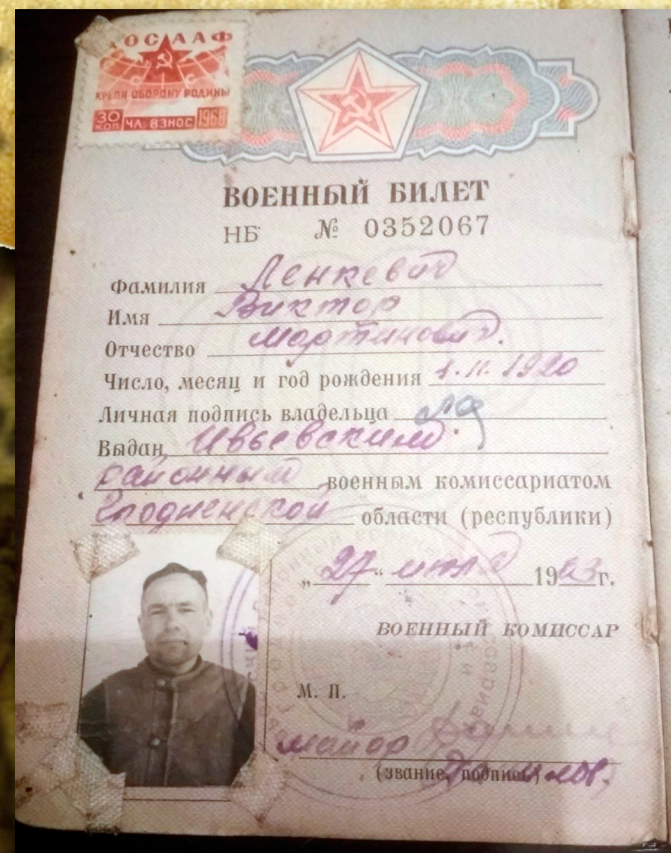 ДОСААФ
КРЕПИ ОБОРОНУ РОДИНЫ
30 КОП ЧЛ. ВЗНОС 1968
ВОЕННЫЙ БИЛЕТ
НБ № 0352067
Фамилия Ленкевич
Имя Виктор
Отчество Мартинович.
Число, месяц и год рождения 1.11.1920
Личная подпись владельца
Выдан Ивьевским
районным военным комиссариатом
Гродненской области (республики)
„27“ июля 1963г.
ВОЕННЫЙ КОМИССАР
М. П.
майор
(звание, подпись)